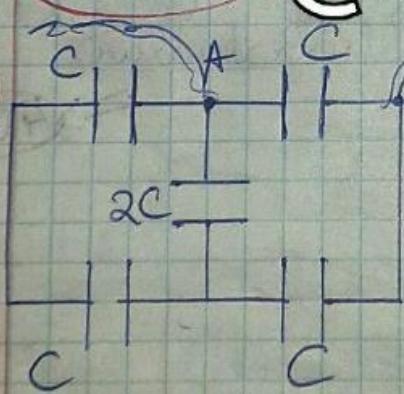 C
C
A
C
2C
C
C